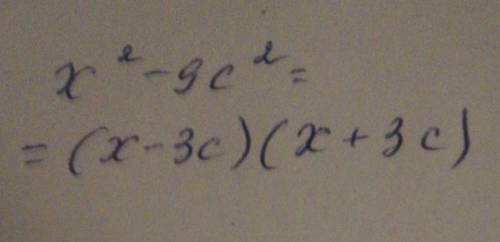 x² - 9c² =
= (x - 3c)(x + 3c)